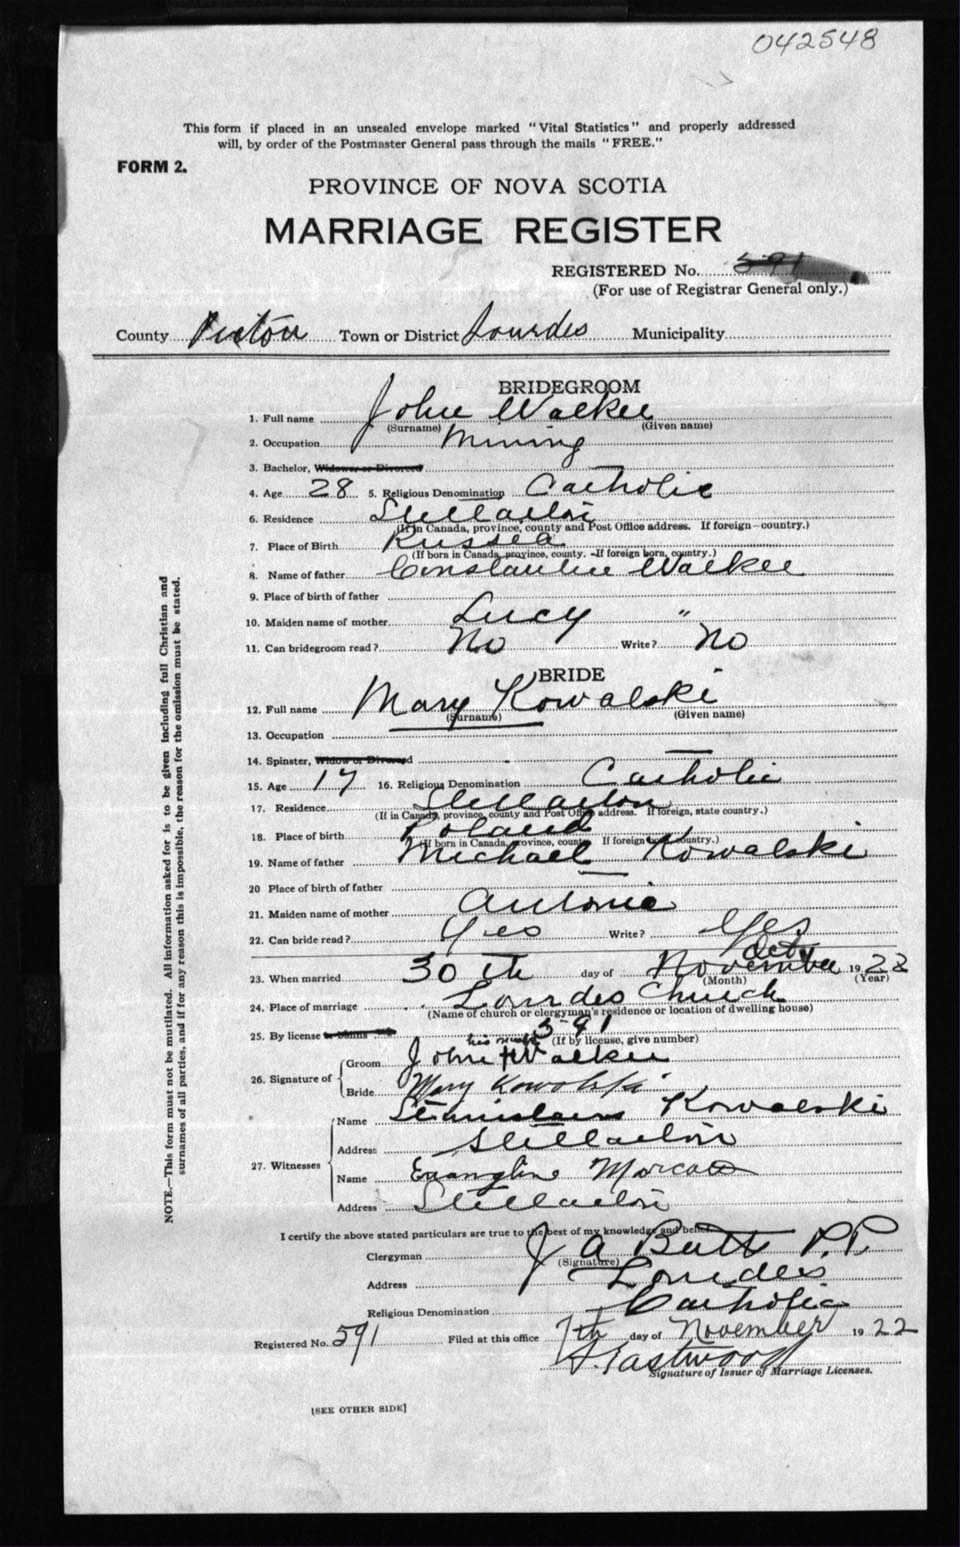 042548
This form if placed in an unsealed envelope marked "Vital Statistics" and properly addressed
will, by order of the Postmaster General pass through the mails "FREE."
FORM 2.
PROVINCE OF NOVA SCOTIA
MARRIAGE REGISTER
REGISTERED No. 591
(For use of Registrar General only.)
County Pictou Town or District Lourdes Municipality
BRIDEGROOM
1. Full name John Walkee
(Surname) (Given name)
2. Occupation Mining
3. Bachelor, Widower or Divorced
4. Age 28 5. Religious Denomination Catholic
6. Residence Stellarton
(If in Canada, province, county and Post Office address. If foreign—country.)
7. Place of Birth Russea
(If born in Canada, province, county. -If foreign born, country.)
8. Name of father Constantine Walkee
9. Place of birth of father
10. Maiden name of mother Lucy "
11. Can bridegroom read? No Write? No
BRIDE
12. Full name Mary Kowalski
(Surname) (Given name)
13. Occupation
14. Spinster, Widow or Divorced
15. Age 17 16. Religious Denomination Catholic
17. Residence Stellarton
(If in Canada, province, county and Post Office address. If foreign, state country.)
18. Place of birth Poland
(If born in Canada, province, county. If foreign born, country.)
19. Name of father Michael Kowalski
20 Place of birth of father
21. Maiden name of mother Antonie
22. Can bride read? Yes Write? Yes
Oct
23. When married 30th day of November 1922
(Month) (Year)
24. Place of marriage Lourdes Church
(Name of church or clergyman's residence or location of dwelling house)
25. By license or banns 591
(If by license, give number)
his mark
26. Signature of Groom John + Walkee
Bride Mary Kowalski
27. Witnesses Name Stanislaus Kowalski
Address Stellarton
Name Evangline
Address Stellarton
I certify the above stated particulars are true to the best of my knowledge and belief.
Clergyman J A Butts P.P.
(Signature)
Address Lourdes
Religious Denomination Catholic
Registered No. 591 Filed at this office 7th day of November 1922
Eastwood
Signature of Issuer of Marriage Licenses.
[SEE OTHER SIDE]
NOTE.—This form must not be mutilated. All information asked for is to be given including full Christian and
surnames of all parties, and if for any reason this is impossible, the reason for the omission must be stated.